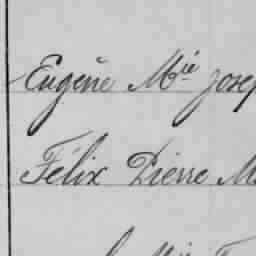 Eugène Mie Josep
Félix Pierre M